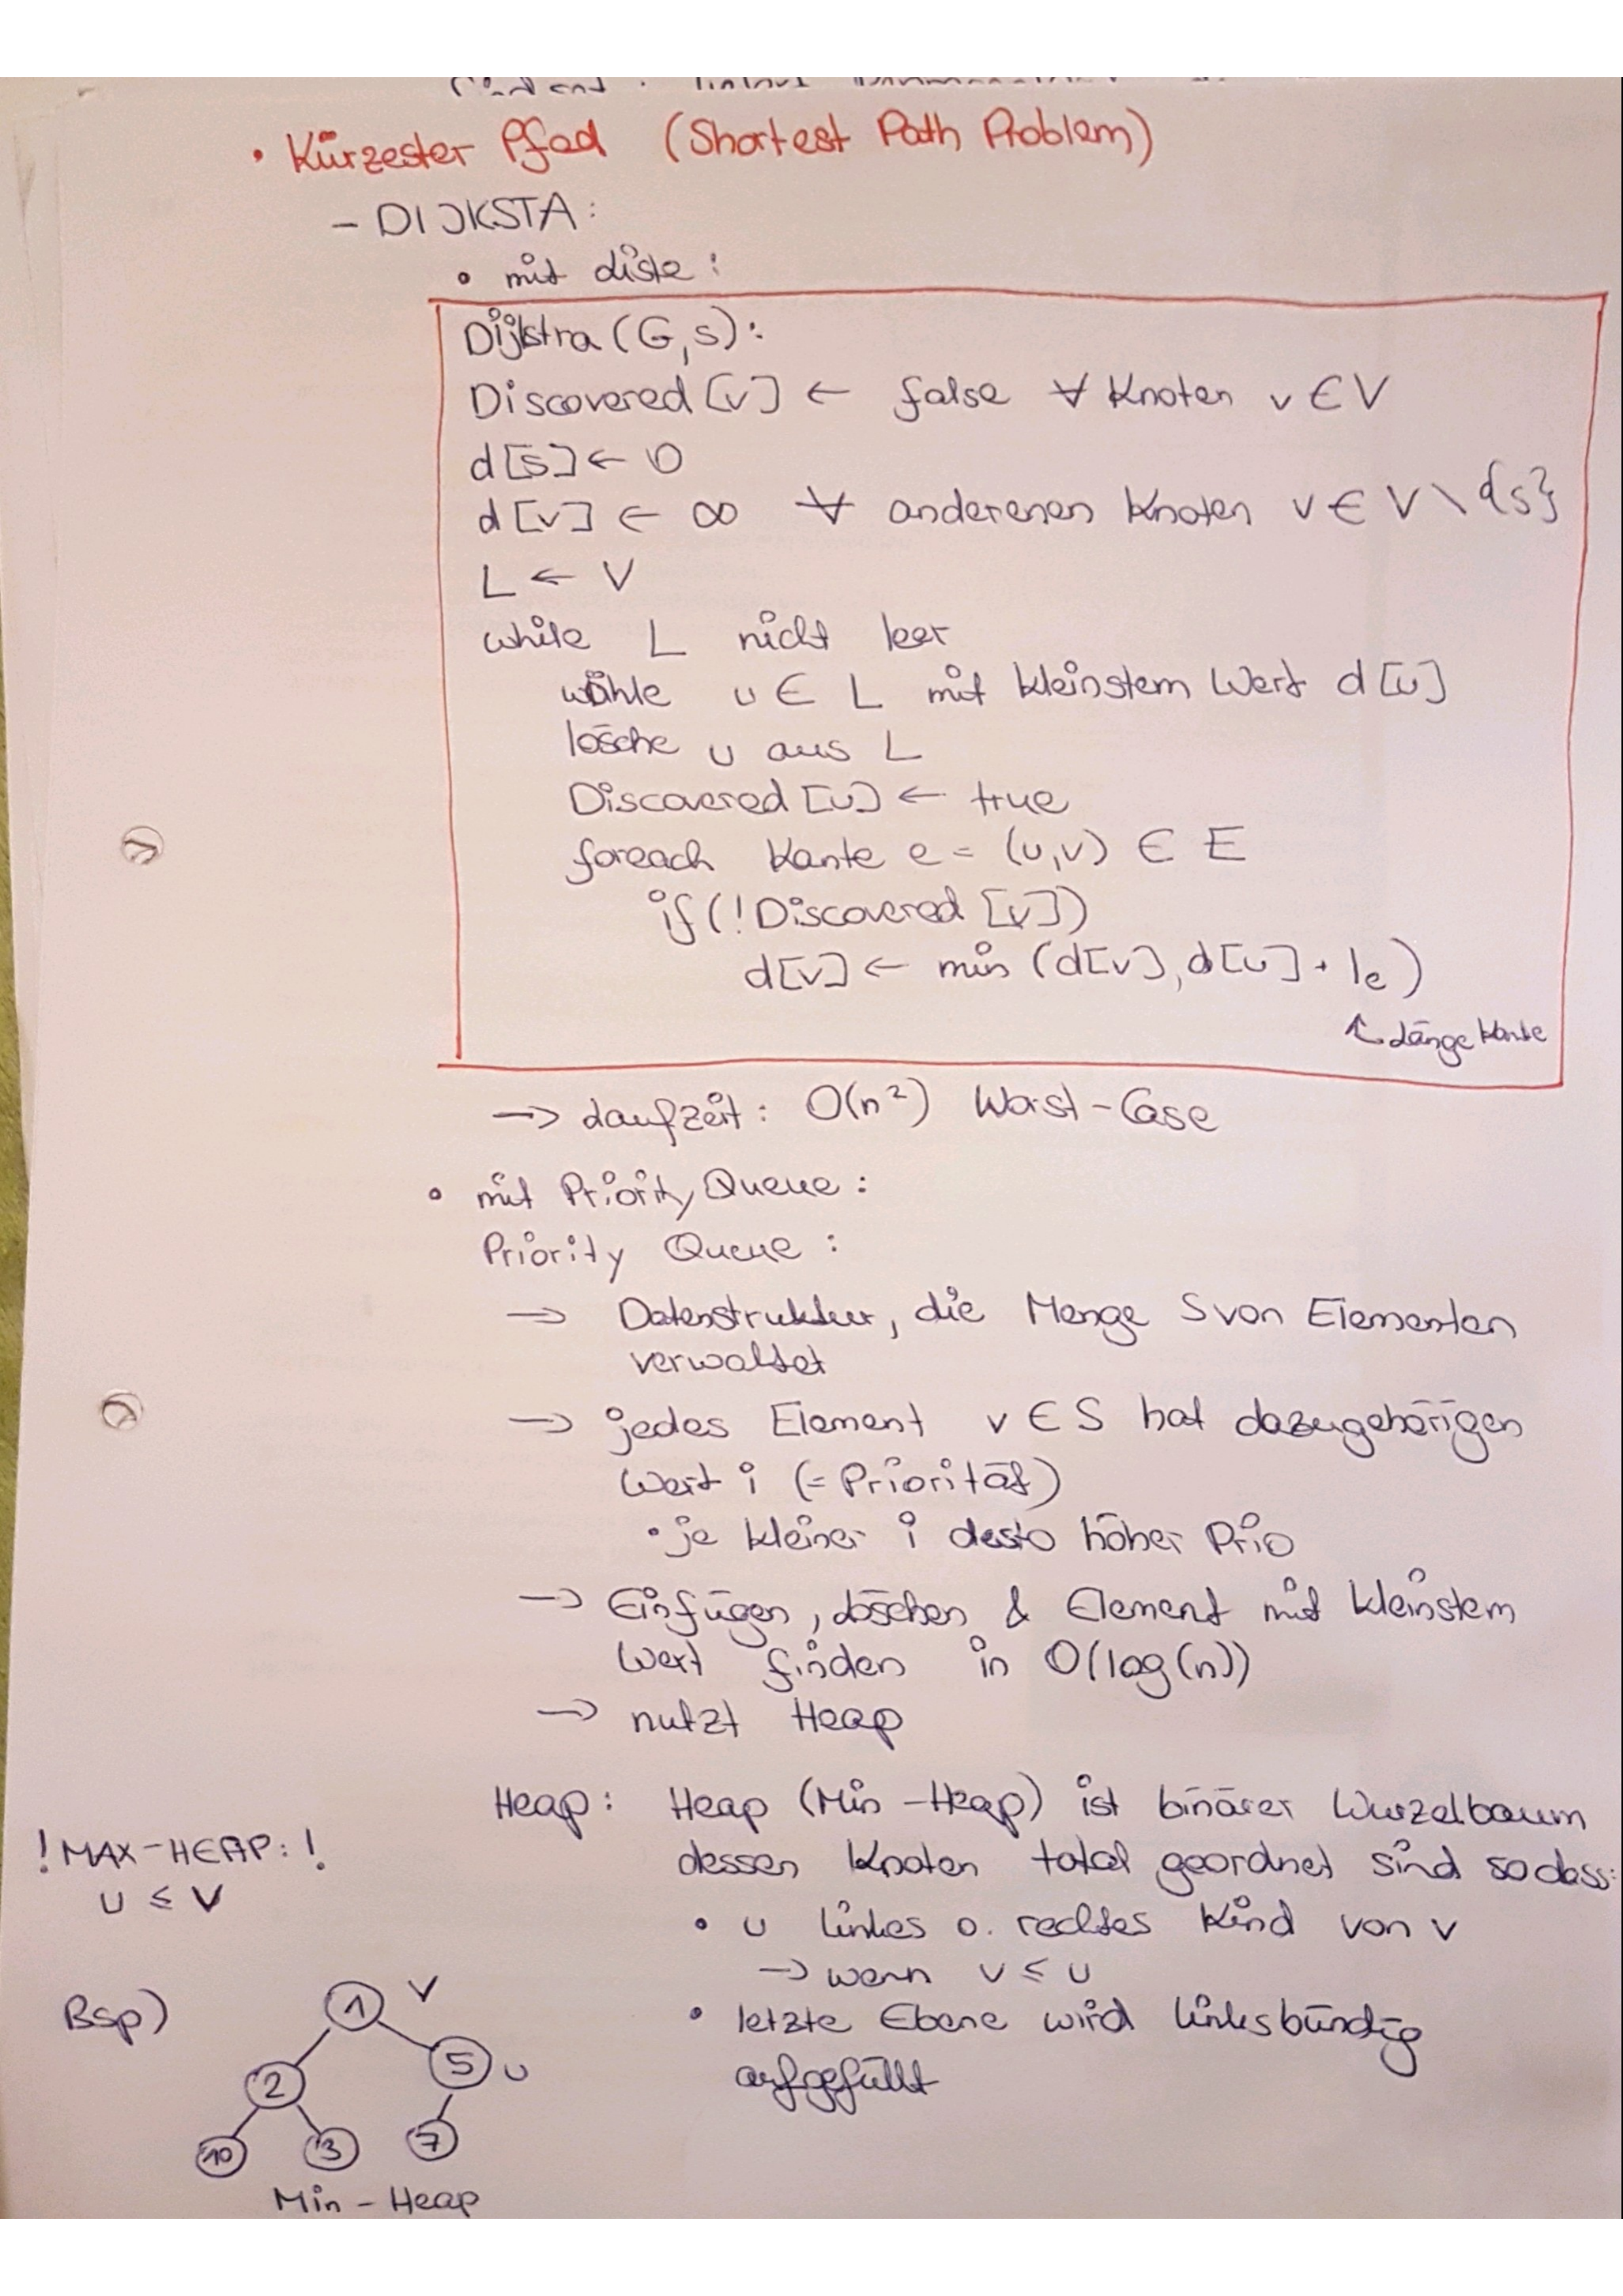 • Kürzester Pfad (Shortest Path Problem)
- DIJKSTA:
• mit Liste:
Dijkstra (G,s):
Discovered [v] ← false ∀ Knoten v ∈ V
d[s] ← 0
d[v] ← ∞ ∀ anderenen Knoten v ∈ V \ {s}
L ← V
while L nicht leer
wähle u ∈ L mit kleinstem Wert d[u]
lösche u aus L
Discovered [u] ← true
foreach Kante e = (u,v) ∈ E
if (!Discovered [v])
d[v] ← min (d[v], d[u] + le)
↑ Länge Kante
→ Laufzeit: O(n²) Worst-Case
• mit Priority Queue:
Priority Queue:
→ Datenstruktur, die Menge S von Elementen
verwaltet
→ jedes Element v ∈ S hat dazugehörigen
Wert i (= Priorität)
• je kleiner i desto höher Prio
→ Einfügen, Löschen & Element mit kleinstem
Wert finden in O(log(n))
→ nutzt Heap
Heap: Heap (Min-Heap) ist binärer Wurzelbaum
dessen Knoten total geordnet sind sodass:
• u linkes o. rechtes Kind von v
→ wenn v ≤ u
• letzte Ebene wird linksbündig
aufgefüllt
! MAX-HEAP: !
u ≤ v
Bsp)
1 v
2 5 u
10 3 7
Min-Heap